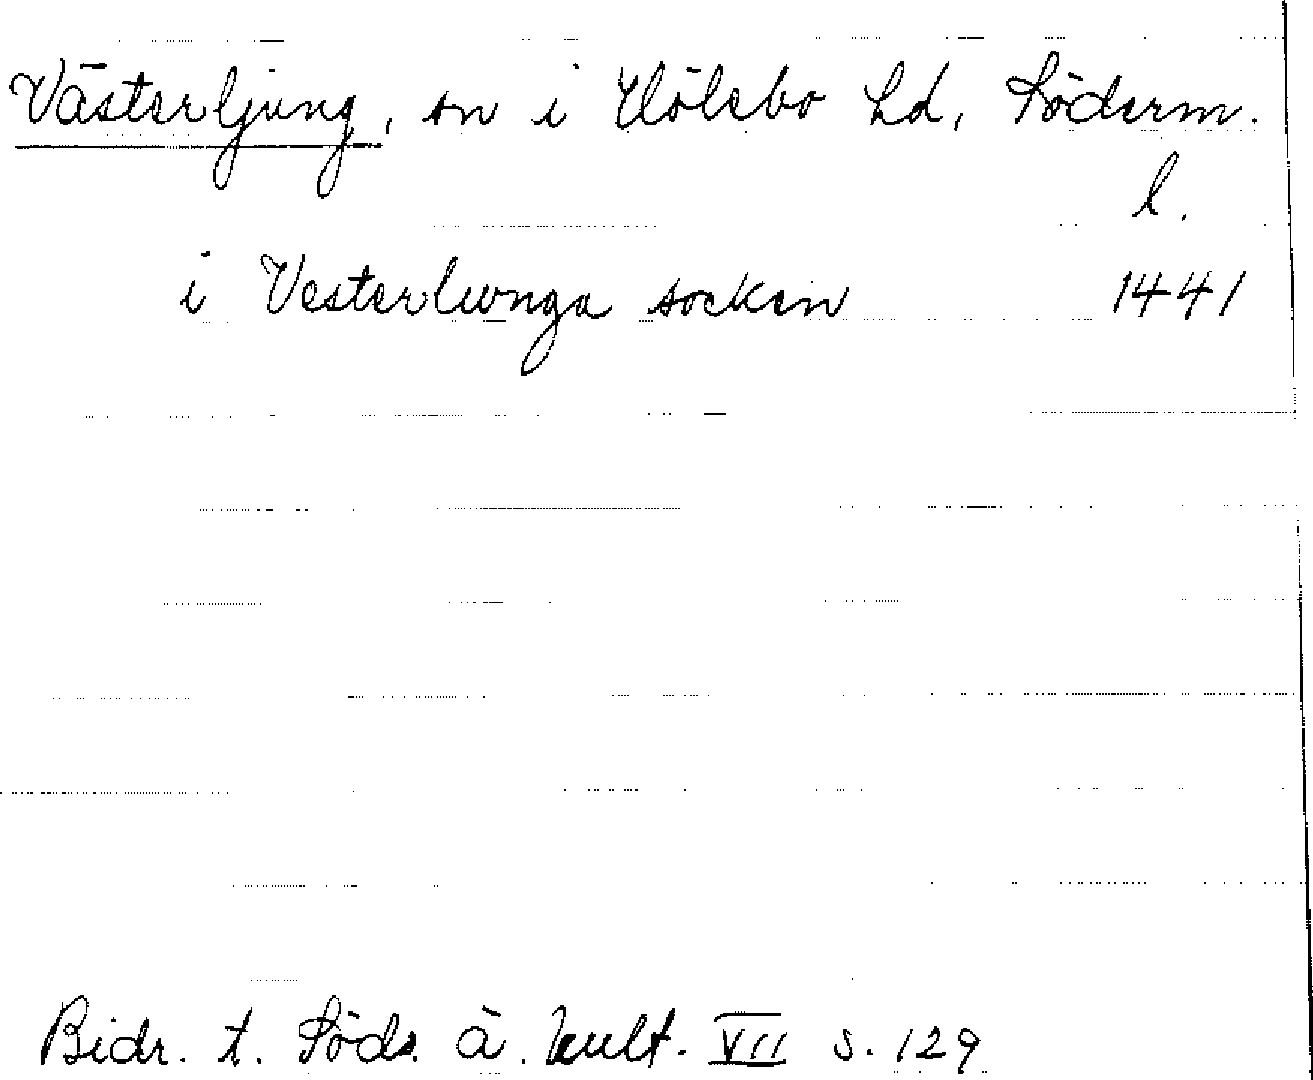 Västerljung, sn i Hölebo hd, Söderm.
l.
i Vesterliunga socken 1441
Bidr. t. Söds. ä. kult. VII s. 129